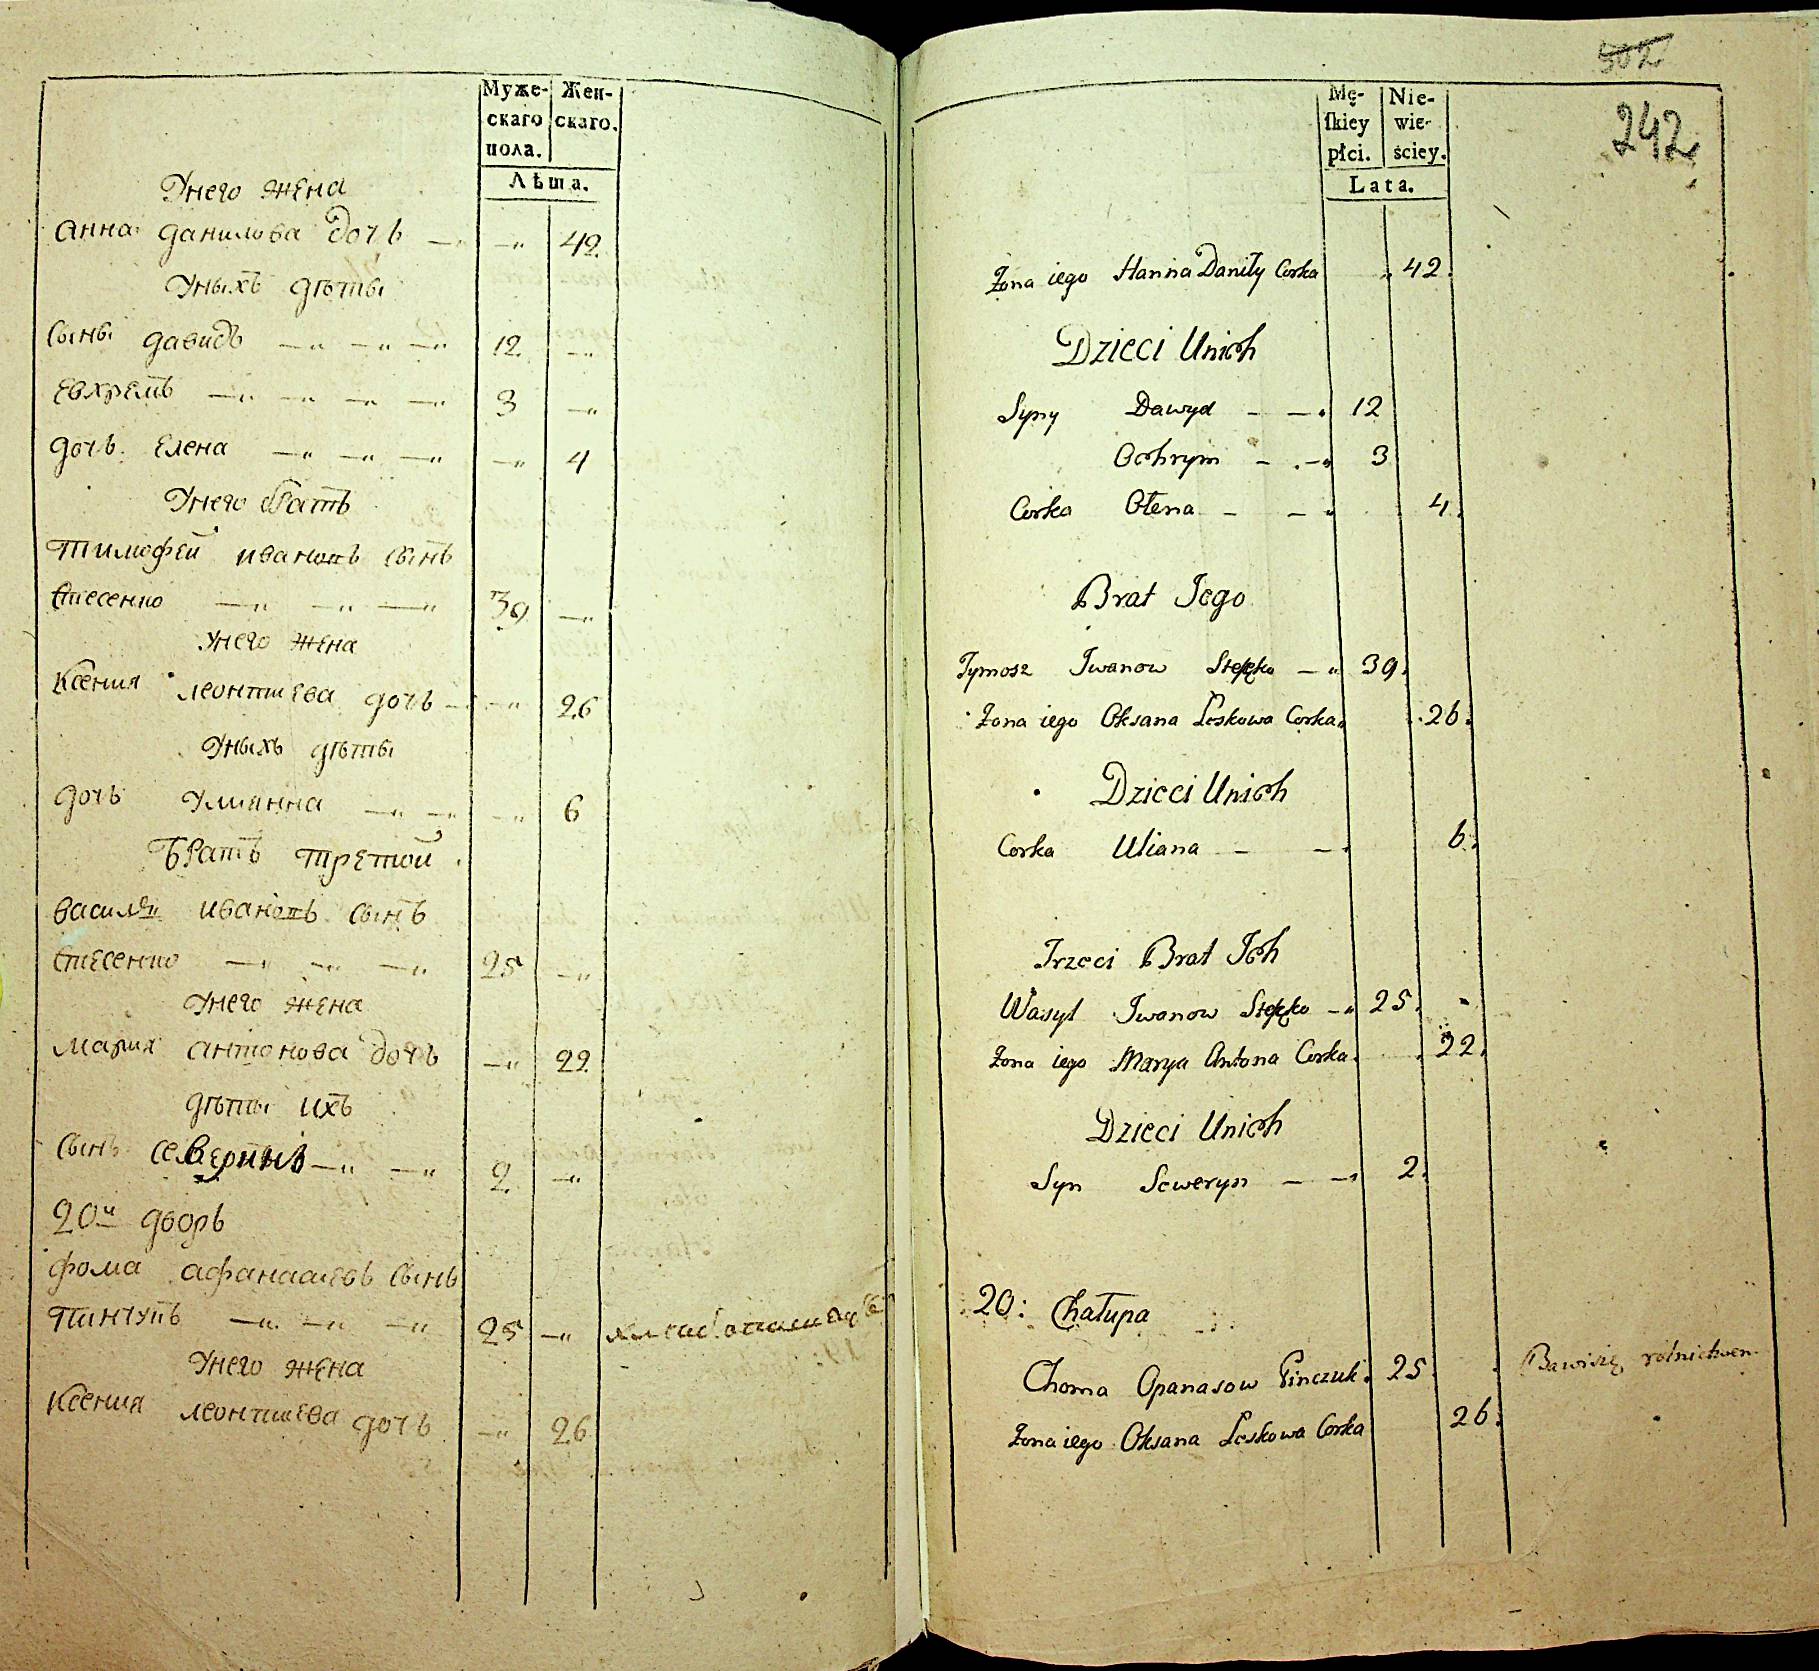 Муже- Жен-
скаго скаго.
пола.
Лѣта.
Унего жена
Анна данилова дочь — „ — „ 42
Уныхъ дѣты
Сыны давидъ — „ — „ — „ 12 — „
Евхремъ — „ — „ — „ — „ 3 — „
дочь Елена — „ — „ — „ — „ 4
Унего братъ
Тимофей ивановъ сынъ
— „ — „ — „ 39 — „
Унего жена
Ксения леонтиева дочь — — „ 26
Уныхъ дѣты
дочь Улианна — „ — „ — „ 6
Братъ третой
василѣй ивановъ сынъ
— „ — „ — „ 25 — „
Унего жена
Мария антонова дочь — „ 22
дѣты ихъ
Сынъ северинъ — „ — „ 2 — „
20й дворъ
фома афанасиевъ сынъ
Пинчукъ — „ — „ — „ 25 — „
Унего жена
Ксения леонтиева дочь — „ 26
502
242
Mę- Nie-
skiey wie-
płci. ściey.
Lata.
Żona iego Hanna Daniły Corka „ 42.
Dzieci Unich
Syny Dawyd — — „ 12
Ochrym — — „ 3
Corka Ołena — — „ 4.
Brat Jego
Tymosz Jwanow — „ 39.
Żona iego Oksana Leskowa Corka. 26.
Dzieci Unich
Corka Uliana — — . 6.
Trzeci Brat Jch
Wasyl Jwanow — „ 25.
Żona iego Marya Antona Corka. 22.
Dzieci Unich
Syn Seweryn — — „ 2.
20: Chałupa
Choma Opanasow Pinczuk. 25. Bawi się rolnictwem
Żona iego Oksana Leskowa Corka 26.